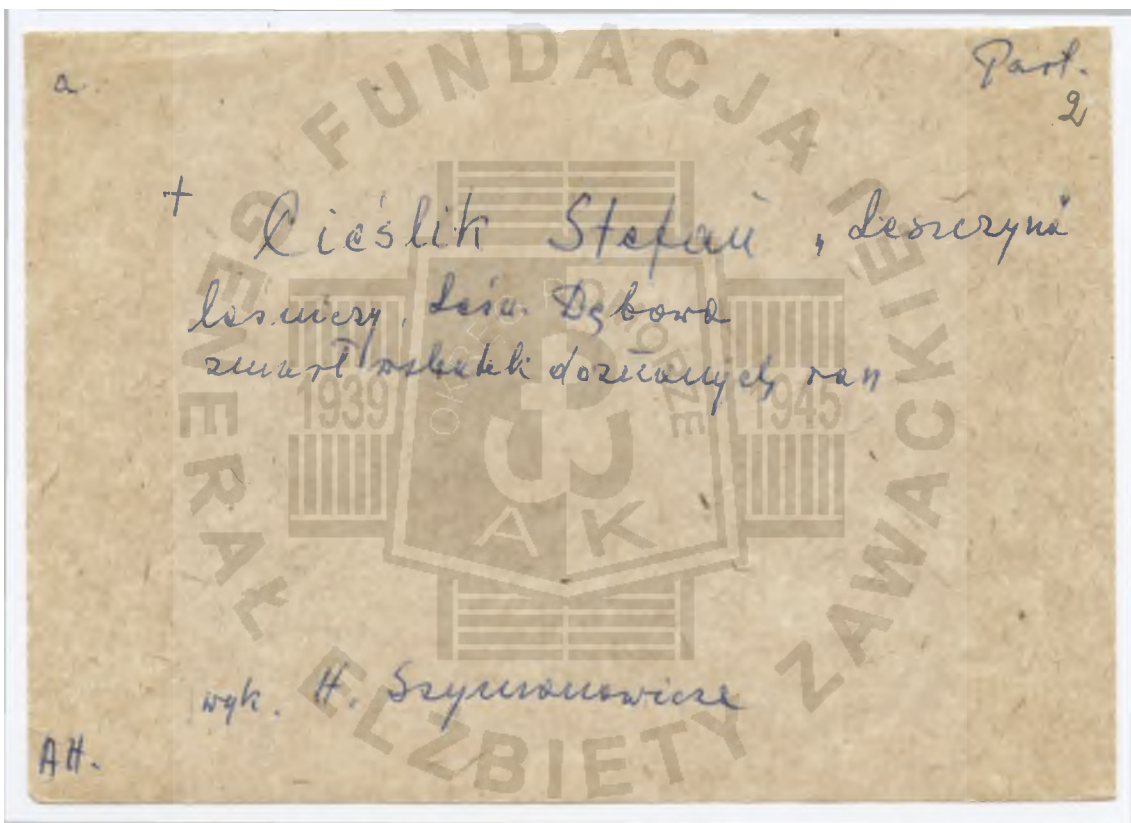 a. Part.
2
+ Cieślik Stefan „Leszczyna"
leśniczy, Leśn. Dębowa
zmarł wskutek doznanych ran
wyk. H. Szymanowicza
AH.
FUNDACJA GENERAŁ ELŻBIETY ZAWACKIEJ
OKRĘG POMORZE
1939 1945
AK